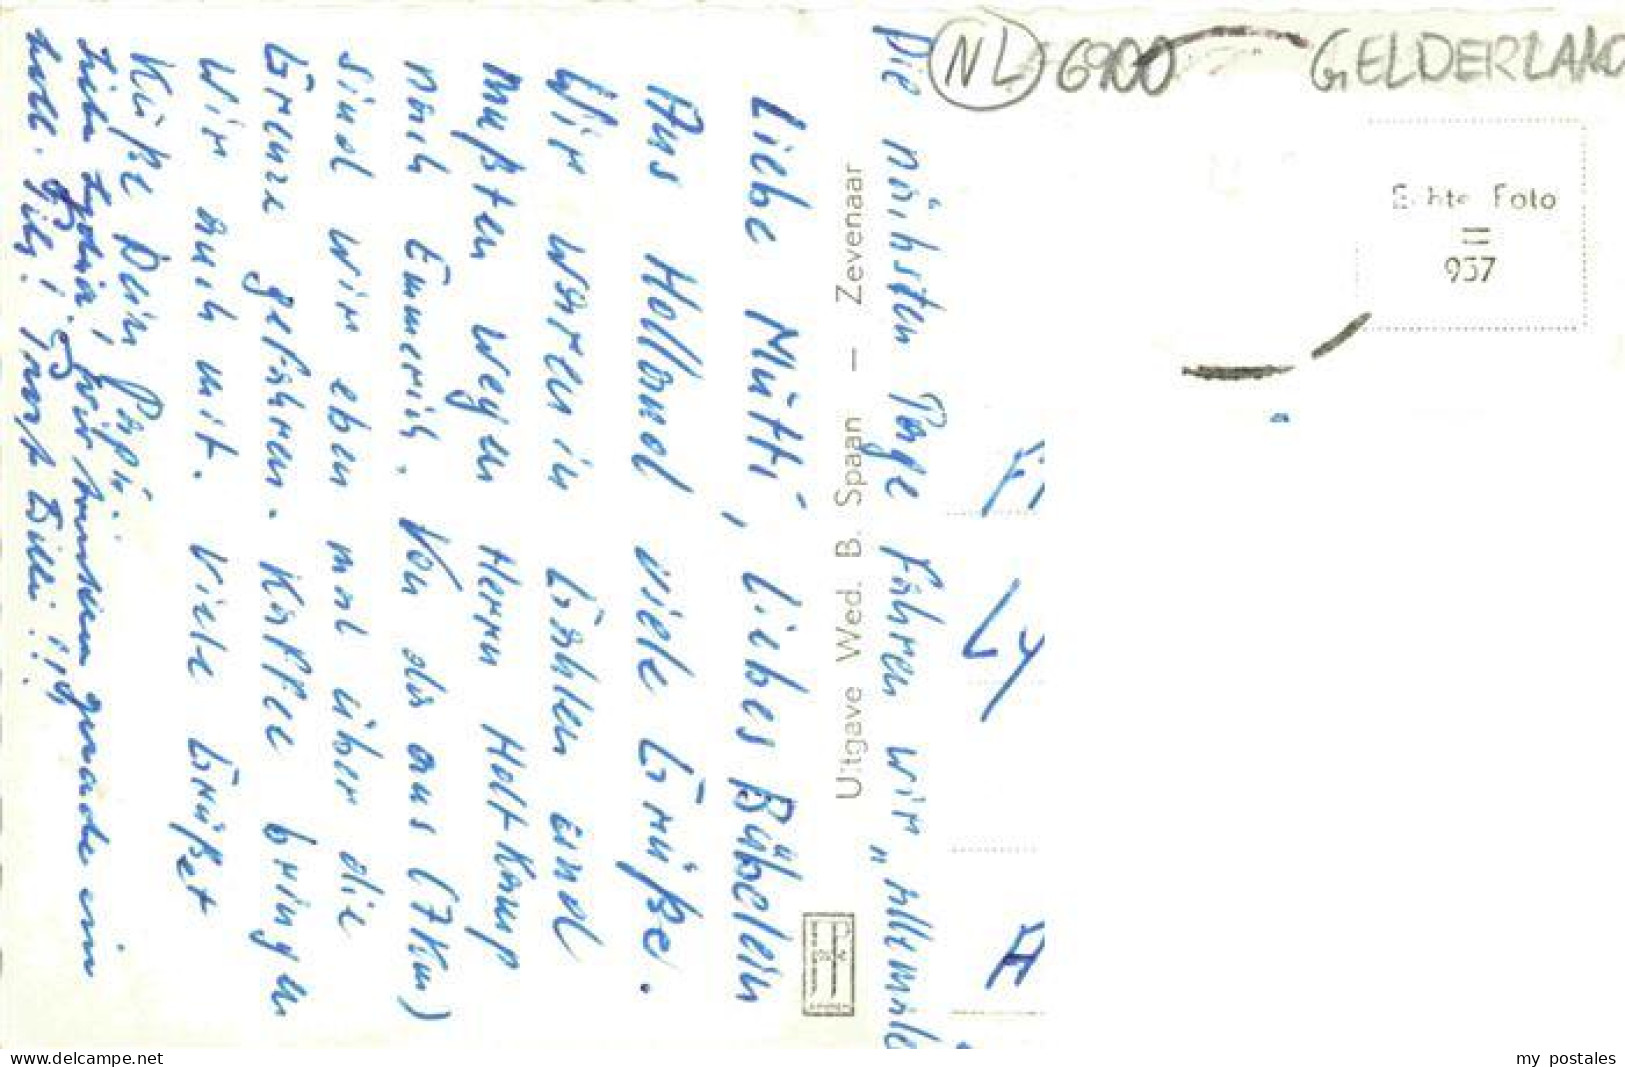 NL 6900 GELDERLAND
Echte Foto
937
Die nächsten Tage fahren wir „allemåle
Uitgave Wed. B. Spaan — Zevenaar
Liebe Mutti, liebes Bübelein
Aus Holland viele Grüße.
Wir waren in Gahlen und
mußten wegen Herrn Holtkamp
nach Emmerich. Von da aus (7 Km)
sind wir eben mal über die
Grenze gefahren. Kaffee bringen
wir auch mit. Viele Grüße
Küße Dein Papi.
Liebe Lydia, wir trinken gerade ein
Tant Billi!!!